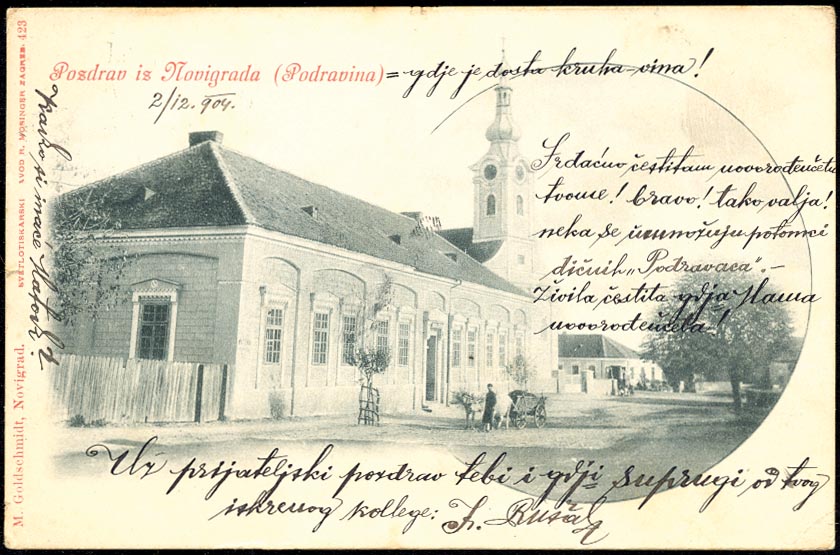 Pozdrav iz Novigrada (Podravina) = gdje je dosta kruha - vina!
2/12. 904.
Srdačno čestitam novorođenčetu
tvome! Bravo! tako valja!
neka se umnožuju potomci
dičnih „Podravaca". –
Živila čestita gdja Mama
novorođenčeta!
Kako si inače
Uz prijateljski pozdrav tebi i gdji supruzi od tvog
iskrenog kollege:
M. Goldschmidt, Novigrad.
SVJETLOTISKARSKI ZAVOD R. MOSINGER ZAGREB. 423